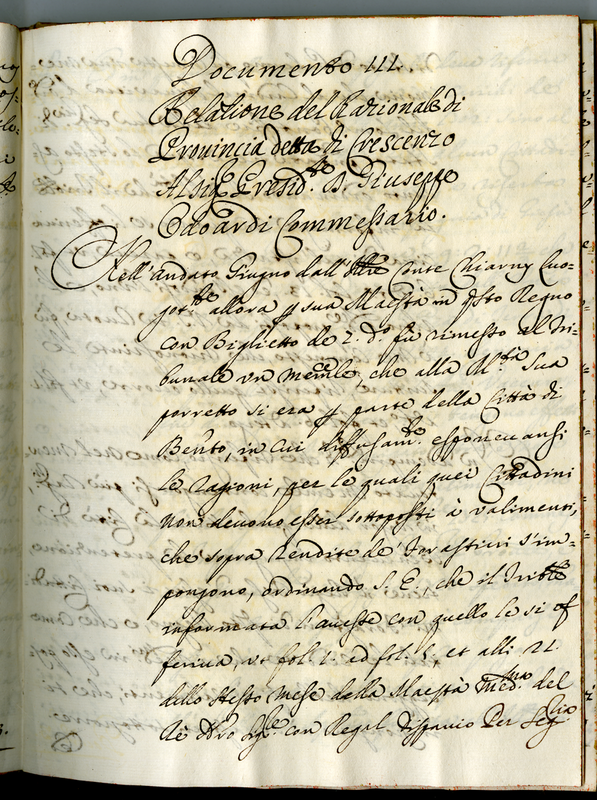 Documento III.
Relazione del Razionale di
Provincia detta di Crescenzo
Al Sig.e Presid.te D. Giuseppe
Odoardi Commessario.
Nell'andato Giugno dall' Conte Chiarny Luo-
got.te allora p sua Maestà in q̃sto Regno
con Biglietto de 2. d.o fù rimesso al Tri-
bunale vn mem.le, che alla M.tà Sua
porretto si era p parte della Città di
Beñto, in cui diffusam.te esponeuansi
le ragioni, per le quali quei Cittadini
non deuono esser sottoposti à valimenti,
che sopra rendite de' Forastieri s'im-
pongono, ordinando S. E., che il Trib.le
informata l'auesse con quello le si of
feriua, vt fol. 1. ed fol. 5, et alli 21.
dello stesso mese della Maestà Med.ma del
Rè con Regal dispaccio Per